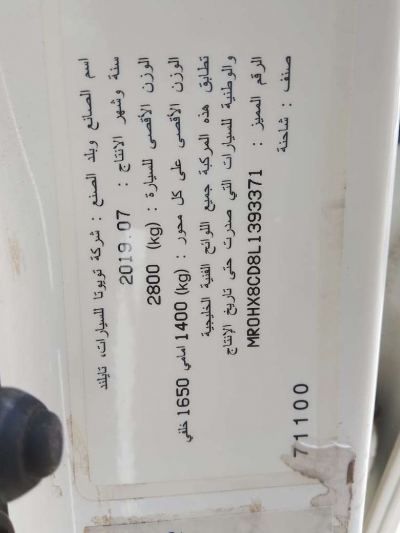 اسم الصانع وبلد الصنع : شركة تويوتا للسيارات، تايلند
سنة وشهر الانتاج : 2019.07
الوزن الأقصى للسيارة : 2800 (kg)
الوزن الأقصى على كل محور : 1400 (kg) امامي 1650 خلفي
تطابق هذه المركبة جميع اللوائح الفنية الخليجية
والوطنية للسيارات التي صدرت حتى تاريخ الإنتاج
الرقم المميز : MR0HX8CD8L1393371
صنف : شاحنة
71100